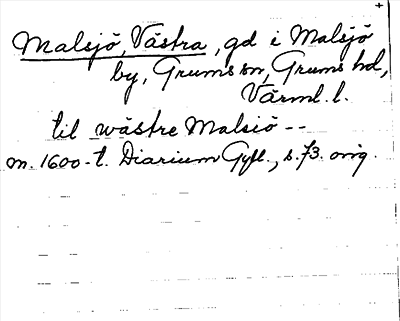 +
Malsjö, Västra, gd i Malsjö
by, Grums sn, Grums hd,
Värml. l.
til wästre Malsiö --
m. 1600-t. Diarium Gyll., s. 73. orig.